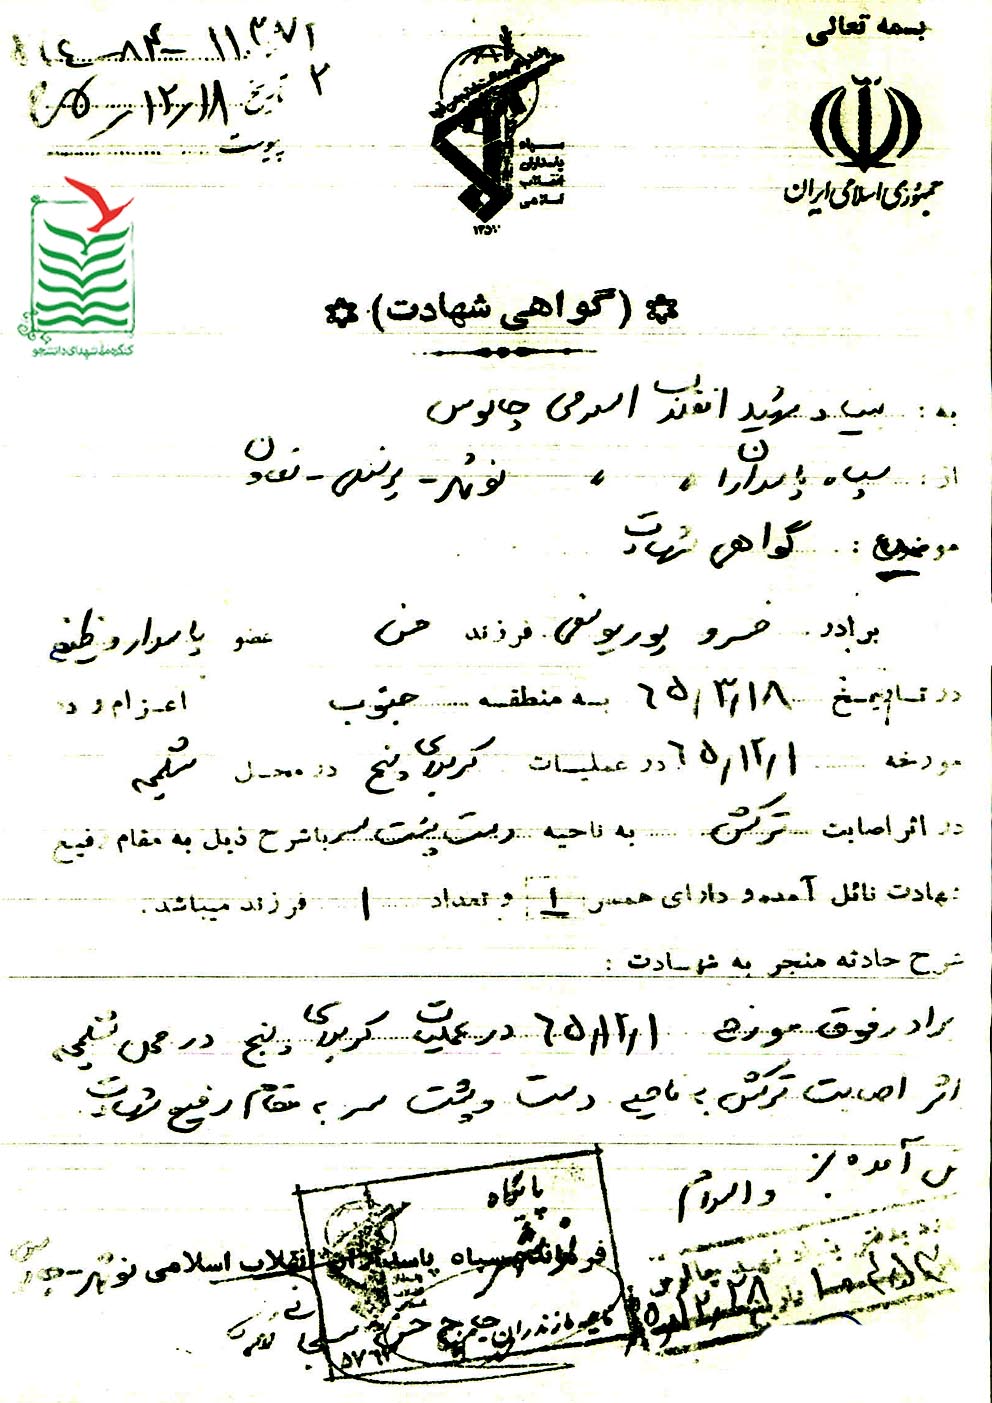 بسمه تعالی
جمهوری اسلامی ایران
سپاه
پاسداران
انقلاب
اسلامی
تاریخ ۱۸/۱۲/
پیوست
کنگره ملی شهدای دانشجو
(گواهی شهادت)
به : بنیاد شهید انقلاب اسلامی چالوس
از : سپاه پاسداران " " نوشهر - پرسنلی - تعاون
موضوع : گواهی شهادت
برادر خسرو پوریوسفی فرزند حسن عضو پاسدار وظیفه
در تاریخ ۶۵/۳/۱۸ به منطقه جنوب اعزام و در
مورخه ۶۵/۱۲/۱ در عملیات کربلای پنج در محل شلمچه
در اثر اصابت ترکش به ناحیه دست پشت سر باشرح ذیل به مقام رفیع
شهادت نائل آمده و دارای همسر ۱ و تعداد ۱ فرزند میباشد.
شرح حادثه منجر به شهادت :
برادر فوق مورخه ۶۵/۱۲/۱ در عملیات کربلای پنج در محل شلمچه
اثر اصابت ترکش به ناحیه دست و پشت سر به مقام رفیع شهادت
آمده والسلام
پایگاه
فرمانده سپاه پاسداران انقلاب اسلامی نوشهر
مازندران